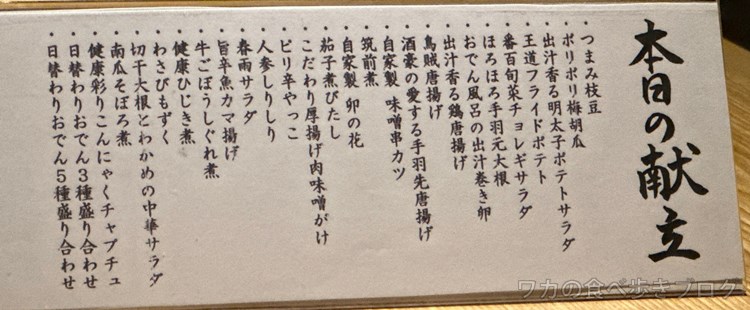 本日の献立
・つまみ枝豆
・ポリポリ梅胡瓜
・出汁香る明太子ポテトサラダ
・王道フライドポテト
・番百旬菜チョレギサラダ
・ほろほろ手羽元大根
・おでん風呂の出汁巻き卵
・出汁香る鶏唐揚げ
・烏賊唐揚げ
・酒豪の愛する手羽先唐揚げ
・自家製 味噌串カツ
・筑前煮
・自家製 卯の花
・茄子煮びたし
・こだわり厚揚げ肉味噌がけ
・ピリ辛やっこ
・人参しりしり
・春雨サラダ
・旨辛魚カマ揚げ
・牛ごぼうしぐれ煮
・健康ひじき煮
・わさびもずく
・切干大根とわかめの中華サラダ
・南瓜そぼろ煮
・健康彩りこんにゃくチャプチュ
・日替わりおでん3種盛り合わせ
・日替わりおでん5種盛り合わせ
ワカの食べ歩きブログ